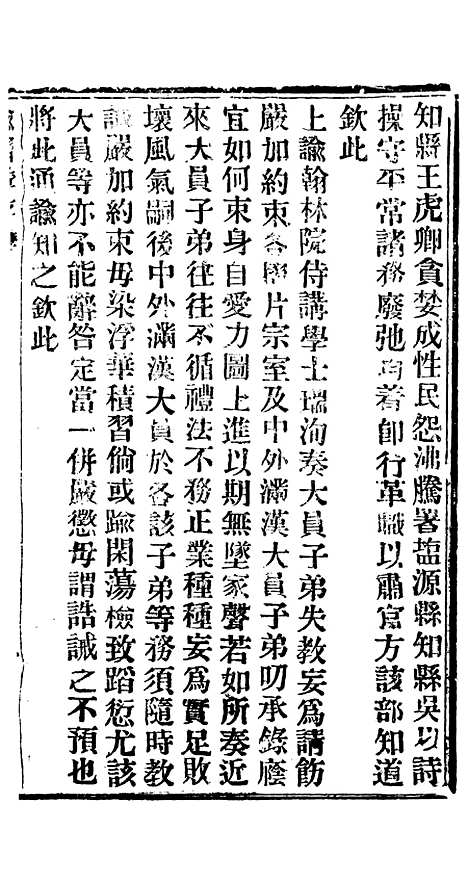 知縣王虎卿貪婪成性民怨沸騰署塩源縣知縣吳以詩
操守平常諸務廢弛均着卽行革職以肅官方該部知道
欽此
上諭翰林院侍講學士瑞洵奏大員子弟失教妄爲請飭
嚴加約束各摺片宗室及中外滿漢大員子弟叨承錄廕
宜如何束身自愛力圖上進以期無墜家聲若如所奏近
來大員子弟往往不循禮法不務正業種種妄爲實足敗
壞風氣嗣後中外滿漢大員於各該子弟等務須隨時教
誡嚴加約束毋染浮華積習倘或踰閑蕩檢致蹈愆尤該
大員等亦不能辭咎定當一併嚴懲毋謂誥誡之不預也
將此通諭知之欽此